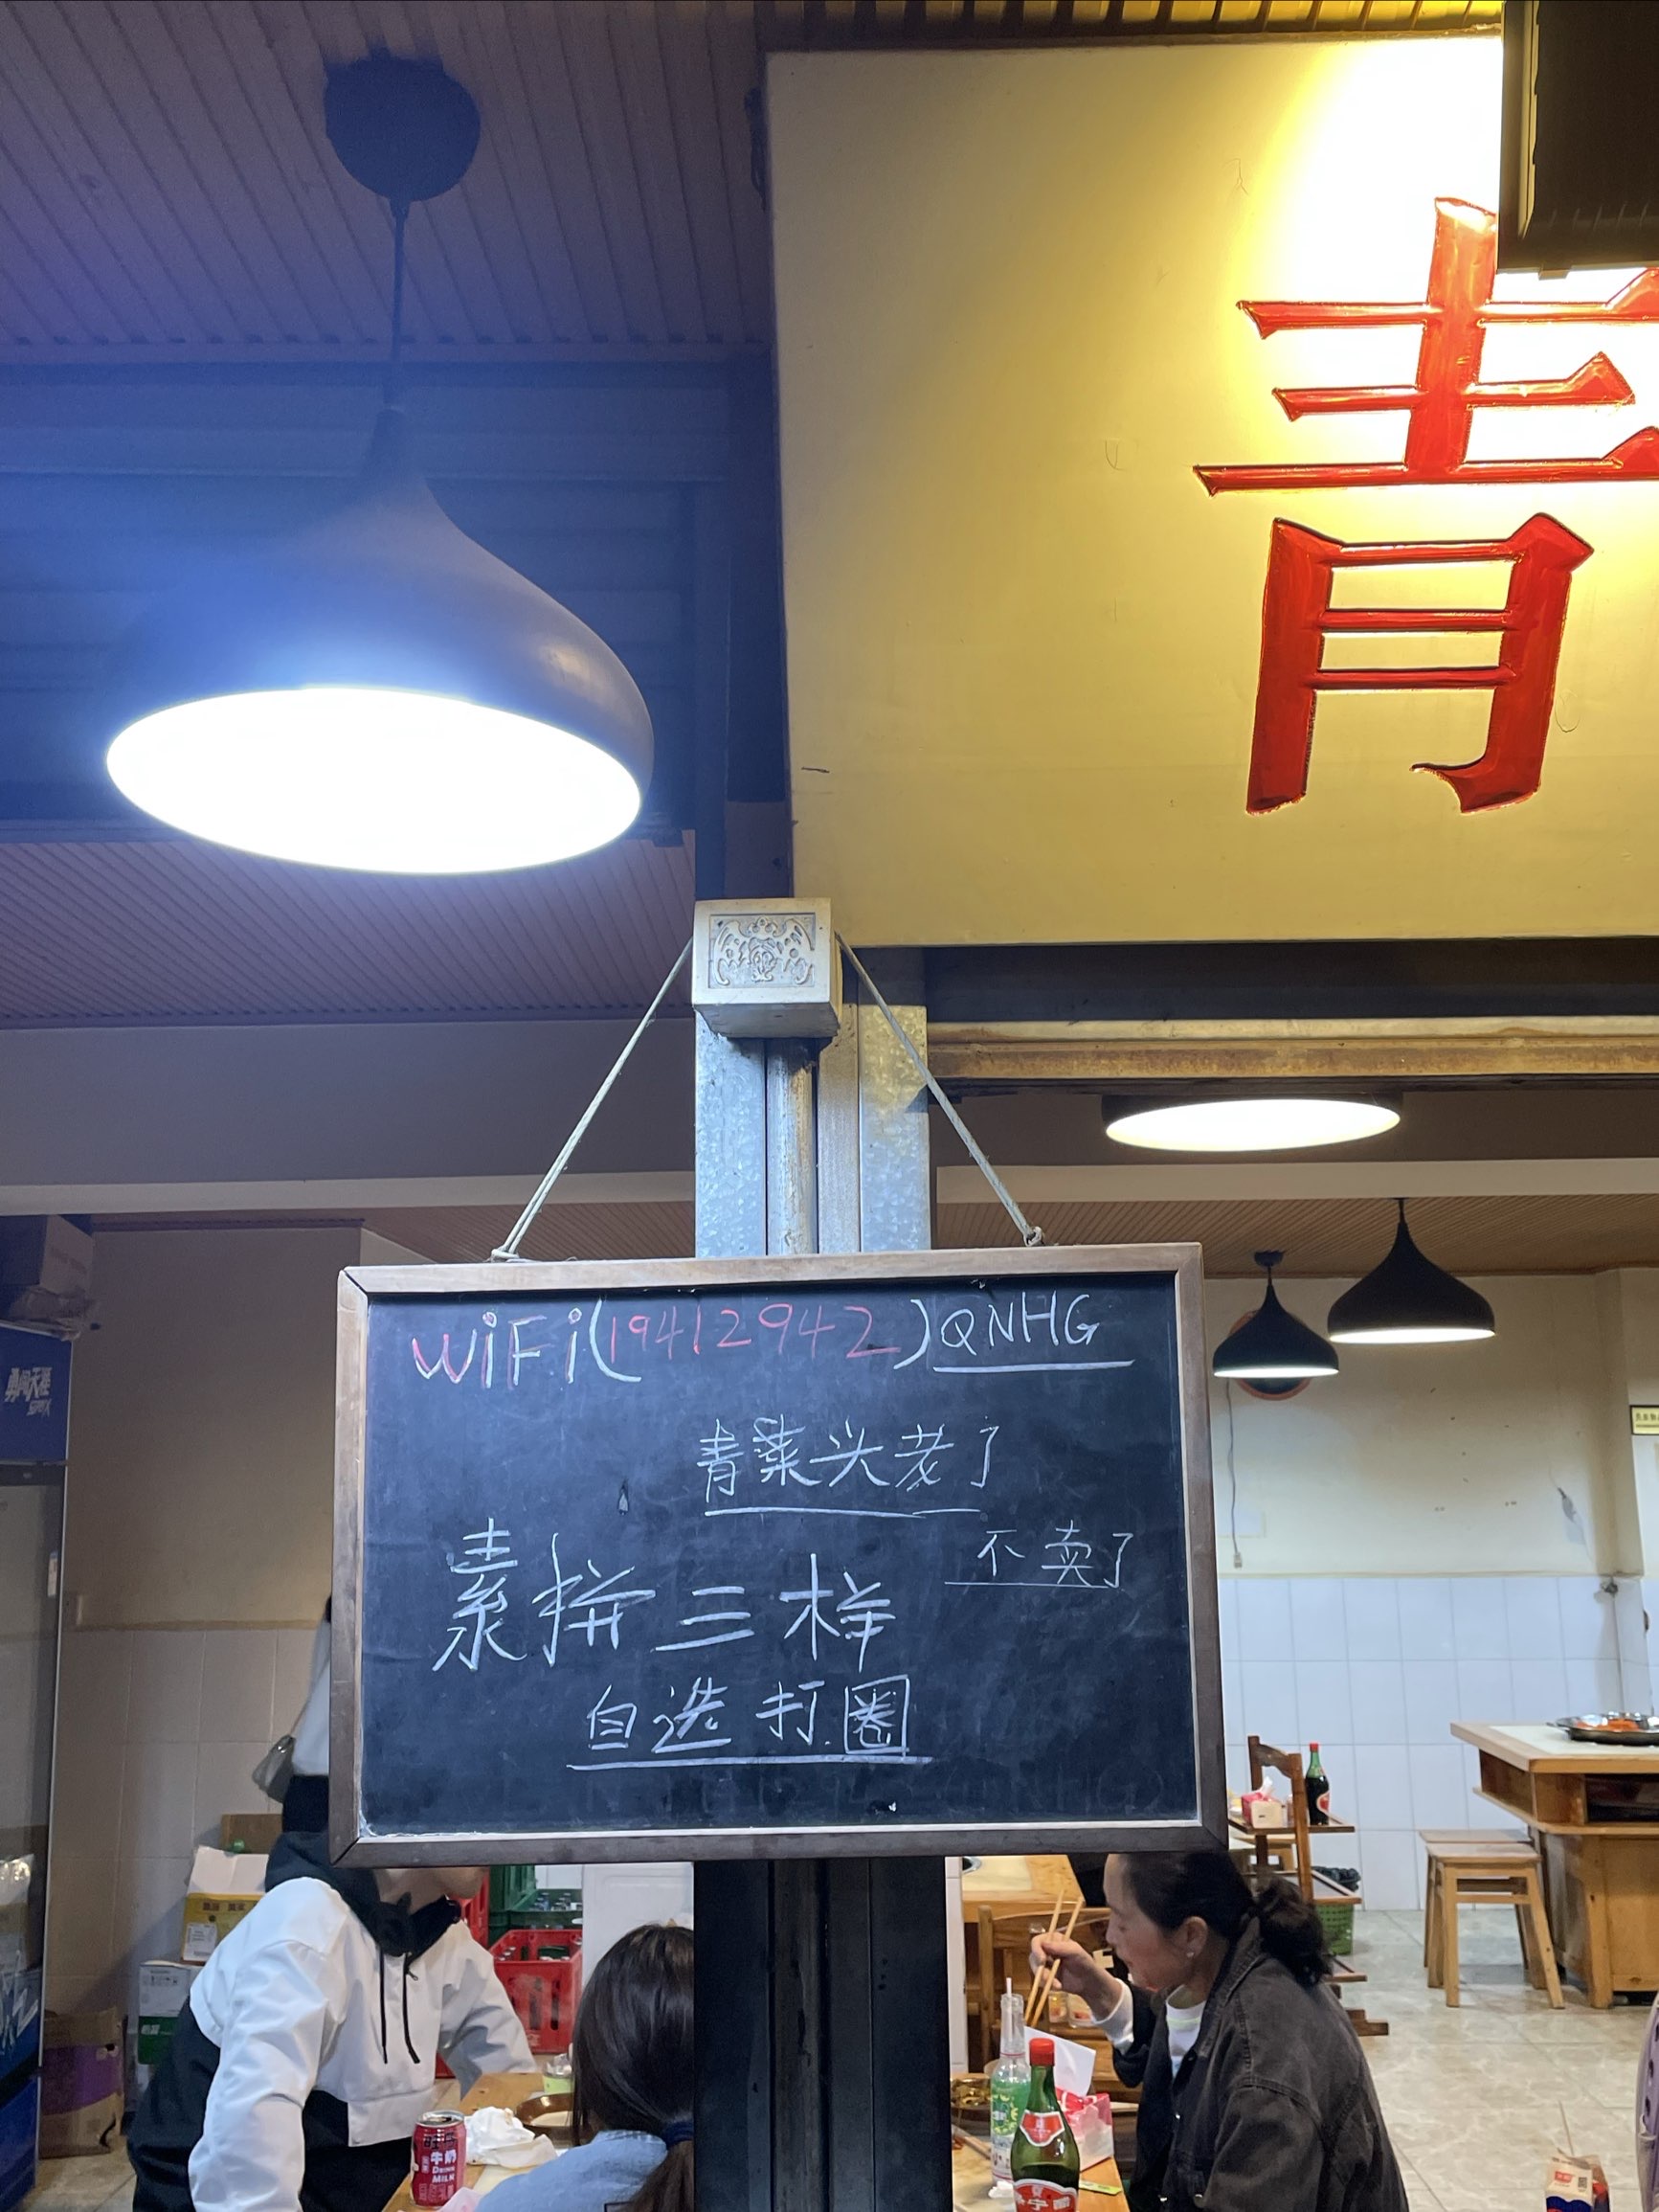 青
WiFi(19412942)QNHG
青菜头老了
不卖了
素拼三样
自选打圈
勇闯天涯
旺仔
牛奶
DRINK
MILK